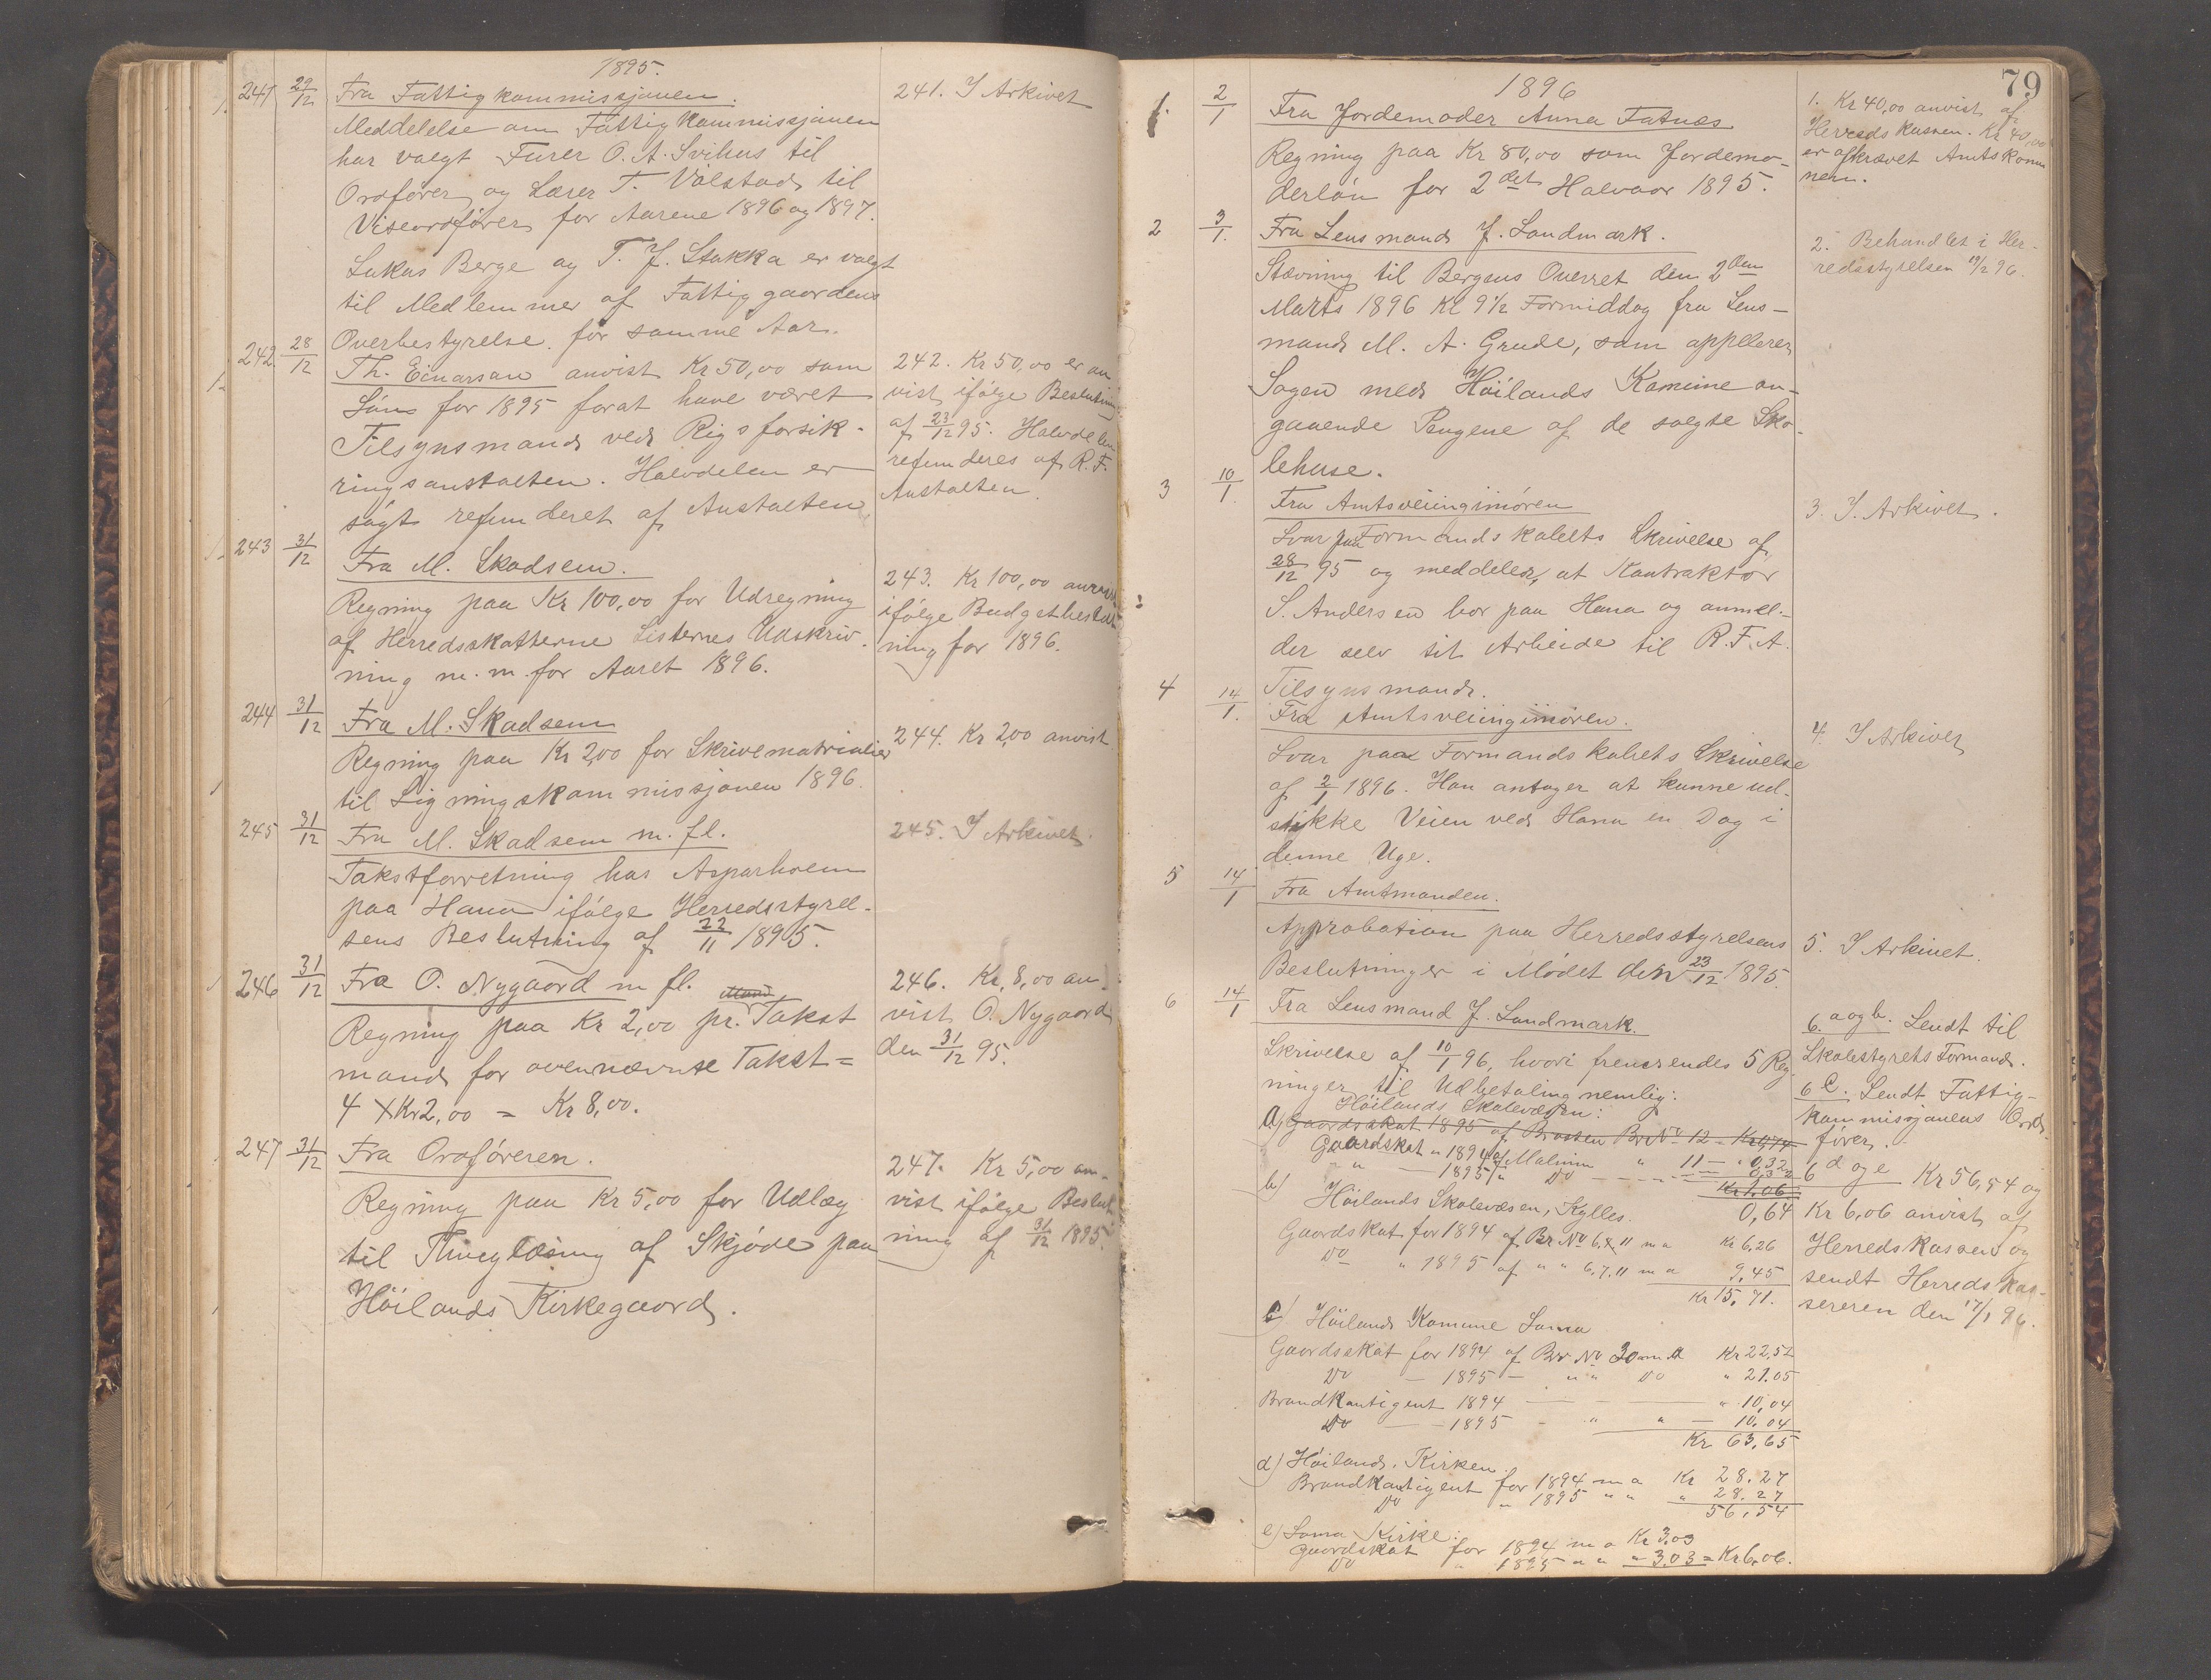 1895.
241 29/12 Fra Fattigkommissjonen.
Meddelelse om Fattigkommissjonen
har valgt Furer O. A. Svihus til
Ordfører og Lærer T. Válstad til
Viseordfører for Aarene 1896 og 1897.
Lukas Berge og T. J. Stokka er valgt
til Medlemmer af Fattiggaardens
Overbestyrelse for samme Aar.
241. I Arkivet
242. 28/12 Th. Einarsen anvist Kr 50,00 som
Løn for 1895 forat have været
Tilsynsmand ved Rigsforsik-
ringsanstalten. Halvdelen er
søgt refunderet af Anstalten
242. Kr 50,00 er an
vist ifølge Beslutning
af 23/12 95. Halvdelen
refunderes af R. F.
Anstalten.
243 31/12 Fra M. Skadsem.
Regning paa Kr 100,00 for Udregning
af Herredsskatterne Listernes Udskriv-
ning m. m. for Aaret 1896.
243. Kr 100,00 anvist
ifølge Budgetbeslut
ning for 1896.
244 31/12 Fra M. Skadsem
Regning paa Kr 2,00 for Skrivematrialier
til Ligningskommissjonen 1896.
244. Kr 2,00 anvist
245 31/12 Fra M. Skadsem m. fl.
Takstforretning hos Asparholm
paa Hana ifølge Herredsstyrel-
sens Beslutning af 22/11 1895.
245. I Arkivet.
246 31/12 Fra O. Nygaard m fl.
Regning paa Kr 2,00 pr. Takst
mand for ovennævnte Takst =
4 X Kr 2,00 = Kr 8,00.
246. Kr. 8,00 an
vist O. Nygaard
den 31/12 95.
247 31/12 Fra Ordføreren.
Regning paa Kr 5,00 for Udlæg
til Thinglæsning af Skjøde paa
Höilands Kirkegaard.
247. Kr 5,00 an-
vist ifølge Beslut
ning af 31/12 1895.
79
1896
1. 2/1 Fra Jordemoder Anna Fatnæs
Regning paa Kr 80,00 som Jordemo-
derløn for 2det Halvaar 1895.
1. Kr 40,00 anvist af
Herredskassen. Kr 40,00
er afkrævet Amtskom
nem.
2 3/1. Fra Lensmand J. Landmark.
Stævning til Bergens Overret den 2den
Marts 1896 Kl 9 1/2 Formiddag fra Lens-
mand M. A. Grude, som appelerer
Sagen med Höilands Komune an-
gaaende Pengene af de solgte Sko-
lehuse.
2. Behandlet i Her-
redsstyrelsen 19/2 96.
3 10/1. Fra Amtsveiinginiøren
Svar paa Formandskabets Skrivelse af
28/12 95 og meddeler, at Kontraktør
S. Andersen bor paa Hana og anmel-
der selv sit Arbeide til R. F. A.
Tilsynsmand.
3. I. Arkivet.
4 14/1. Fra Amtsveiinginiøren.
Svar paa Formandskabets Skrivelse
af 2/1 1896. Han antager at kunne ud-
stikke Veien ved Hana en Dag i
denne Uge.
4. I Arkivet
5 14/1 Fra Amtmanden.
Approbation paa Herredsstyrelsens
Beslutninger i Mødet den 23/12 1895.
5. I Arkivet.
6 14/1 Fra Lensmand J. Landmark.
Skrivelse af 10/1 96, hvori fremsendes 5 Reg
ninger til Udbetaling nemlig:
Höilands Skolevæsen:
a) Gaardsskat 1895 af Brasten Br No 12 - Kr 0,74
Gaardskat " 1894 af Malinin " 11 - " 0,32
" - 1895 " Do - - - 0,32
Kr 1,06
0,64
b) Höilands Skolevæsen, Kylles.
Gaardskat for 1894 af Br No 6.8.11 m a Kr 6,26
Do " 1895 af " " 6.7.11 m a 9,45
Kr 15,71.
c) Höilands Komune Soma
Gaardsskat for 1894 af Br No 30 m a Kr 22,52
Do - 1895 - " " Do " 21.05
Brandkontigent 1894 - - " 10,04
Do - 1895 - " " - 10.04
Kr 63,65
d) Höilands Kirken.
Brandkontigent for 1894 m a Kr 28.27
Do " 1895 " " " 28.27
56,54
e) Soma Kirke:
Gaardskat for 1894 m a Kr 3,03
Do " 1895 " " " 3.03 = Kr 6,06.
6. a og b. Sendt til
Skolestyrets Formand.
6 c. Sendt Fattig-
kommissjonens Ord-
fører.
6 d og e Kr 56,54 og
Kr 6,06 anvist af
Herredskassen og
sendt Herredskas-
sereren den 17/1 96.